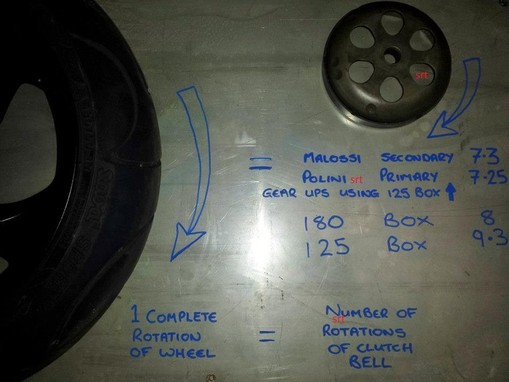 srt
= MALOSSI SECONDARY 7.3
POLINI srt PRIMARY 7.25
GEAR UPS USING 125 BOX ↑
180 BOX 8
125 BOX 9.3
1 COMPLETE
ROTATION
OF WHEEL
=
NUMBER OF
srt
ROTATIONS
OF CLUTCH
BELL